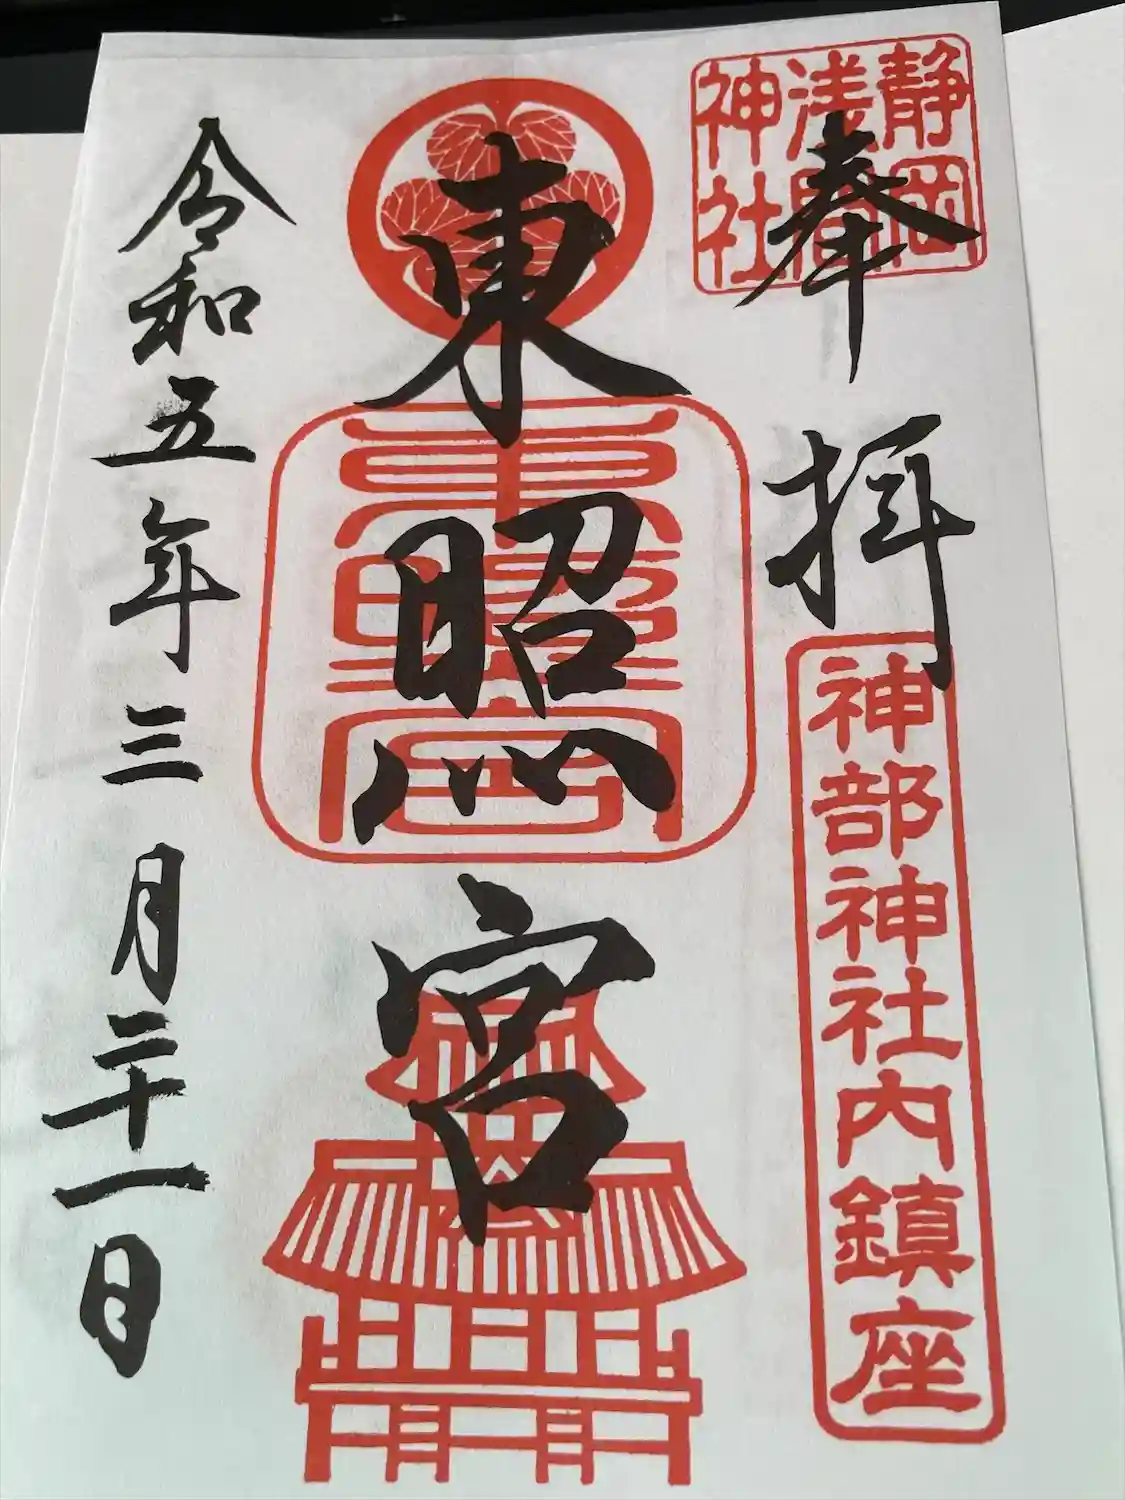 静岡
浅間
神社
奉拝
神部神社内鎮座
東照宮
東照宮
令和五年三月二十一日